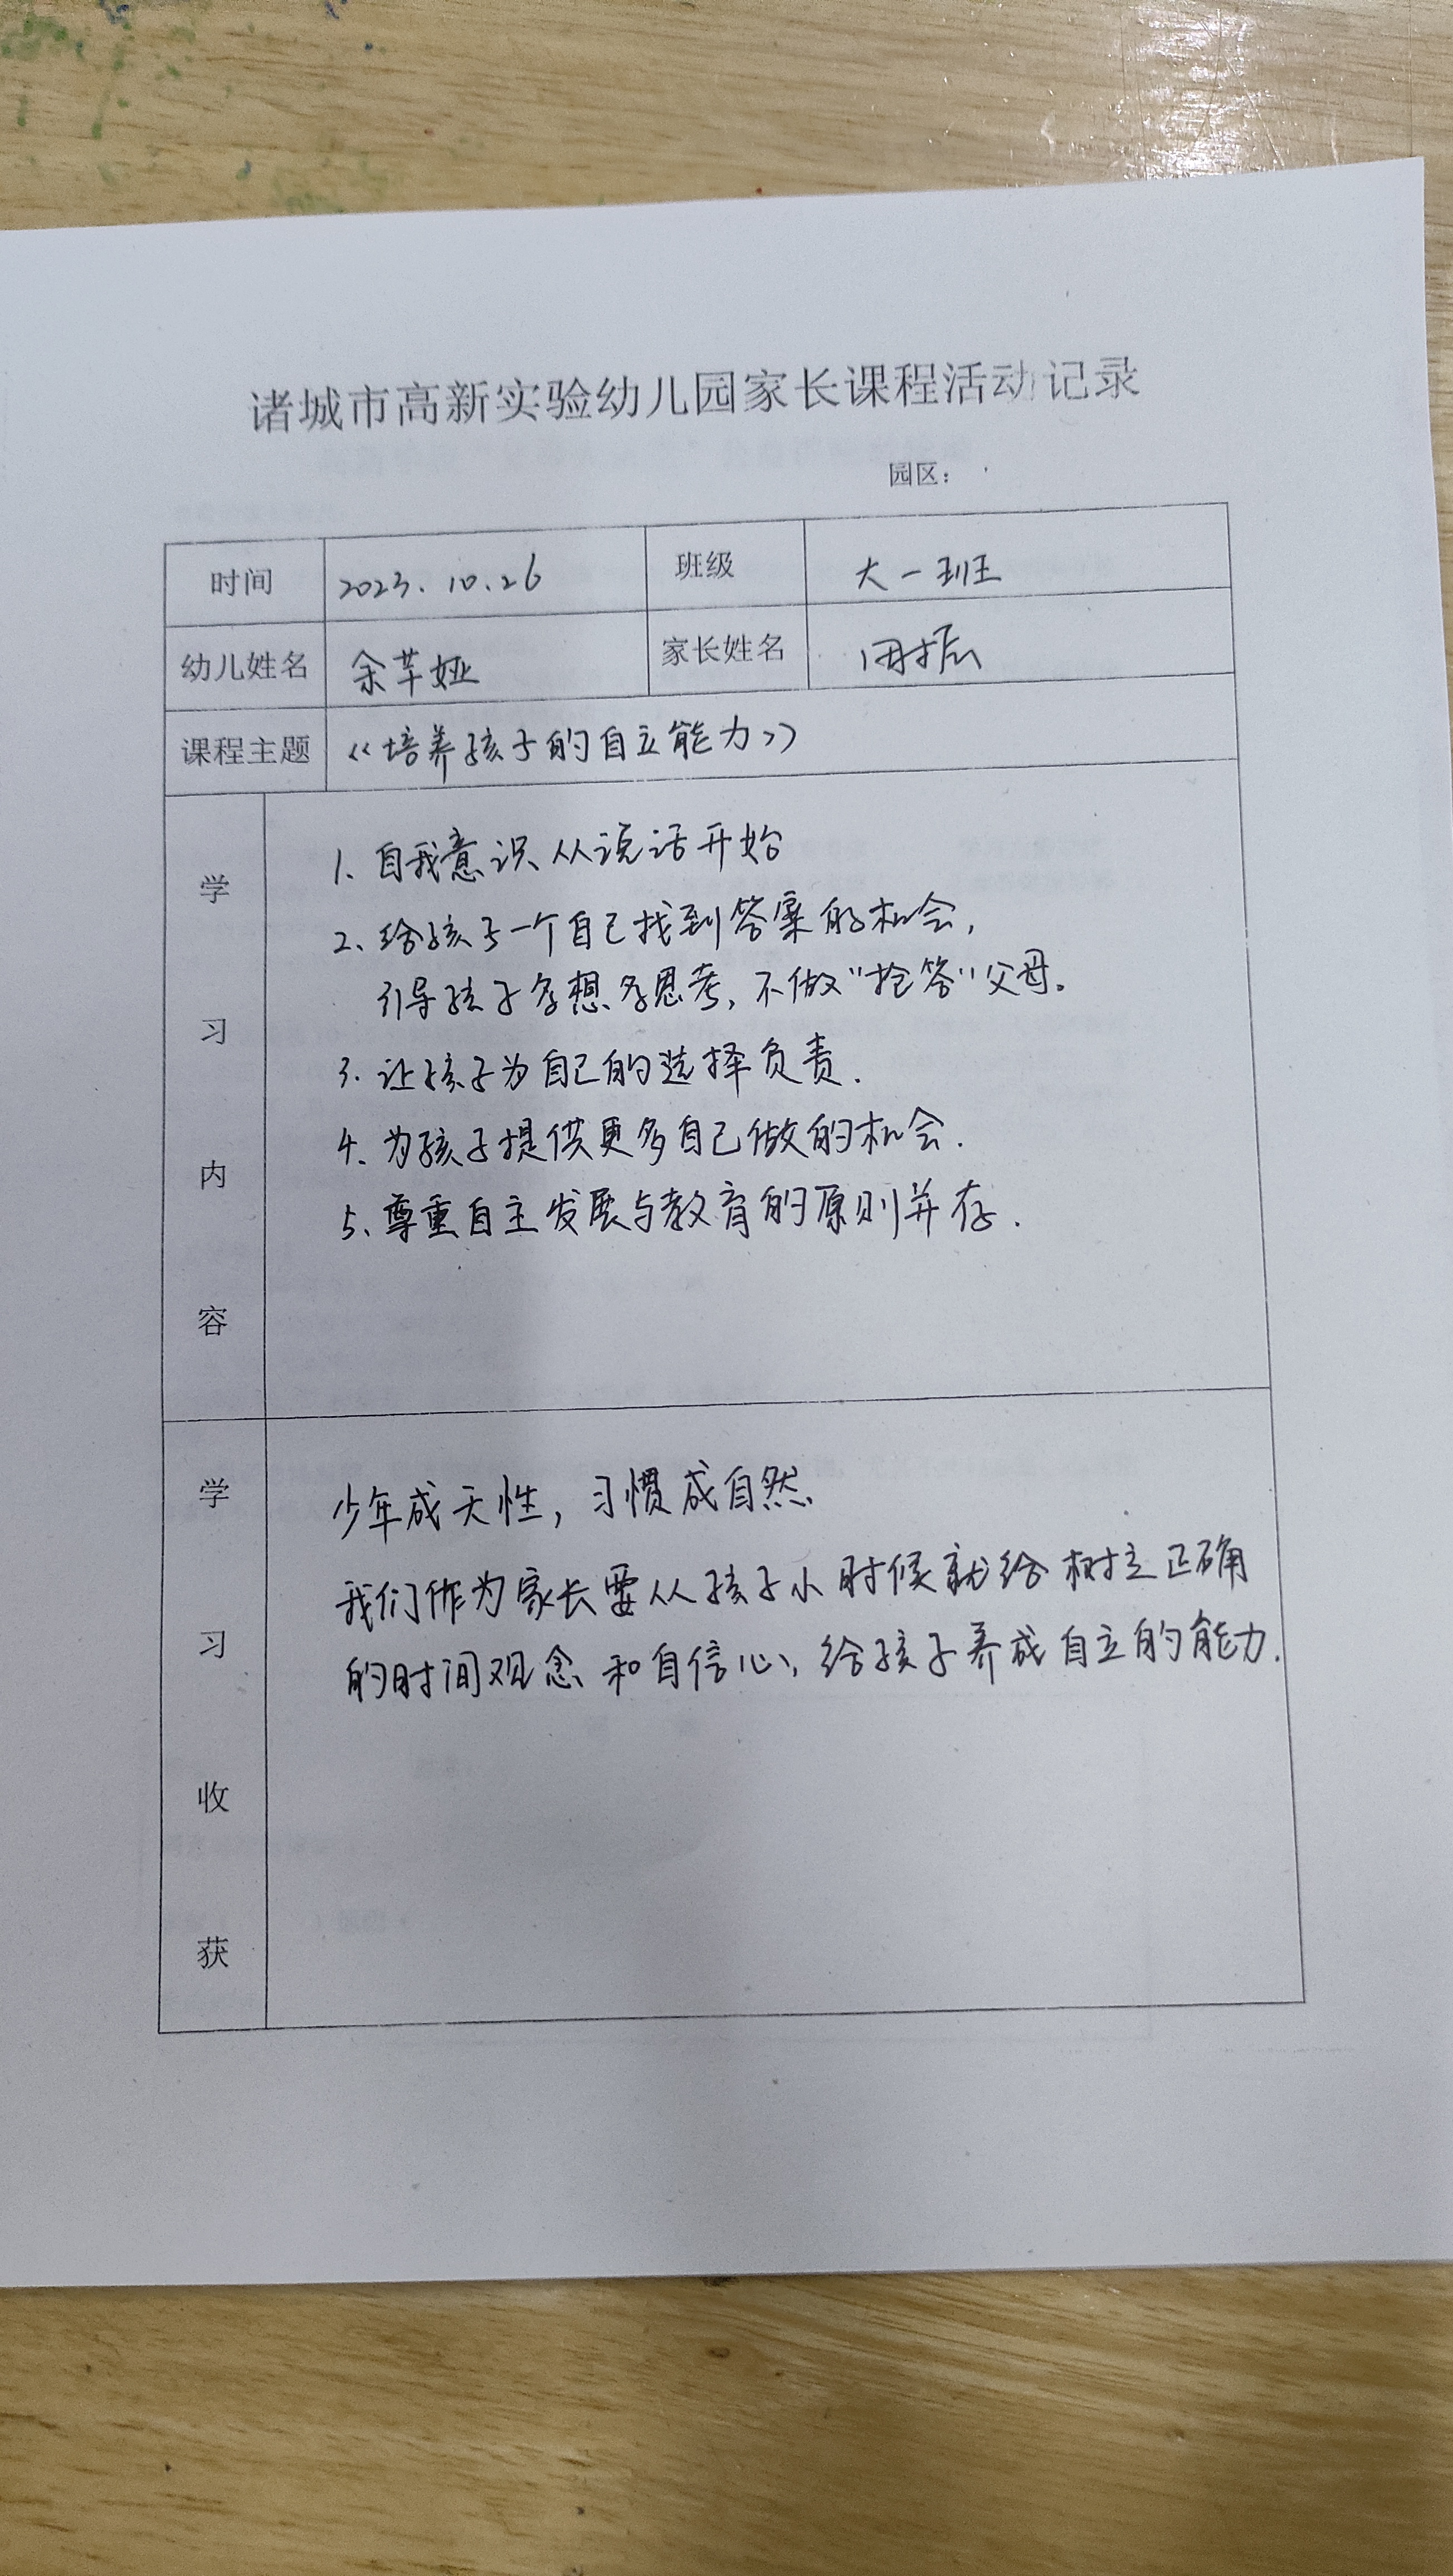 诸城市高新实验幼儿园家长课程活动记录
园区：
时间 2023.10.26 班级 大一班
幼儿姓名 余芊娅 家长姓名
课程主题 《培养孩子的自立能力》
学习内容
1、自我意识从说话开始
2、给孩子一个自己找到答案的机会，
引导孩子多想多思考，不做“抢答”父母。
3. 让孩子为自己的选择负责.
4、为孩子提供更多自己做的机会.
5、尊重自主发展与教育的原则并存.
学习收获
少年成天性，习惯成自然
我们作为家长要从孩子小时候就给树立正确
的时间观念和自信心，给孩子养成自立的能力.